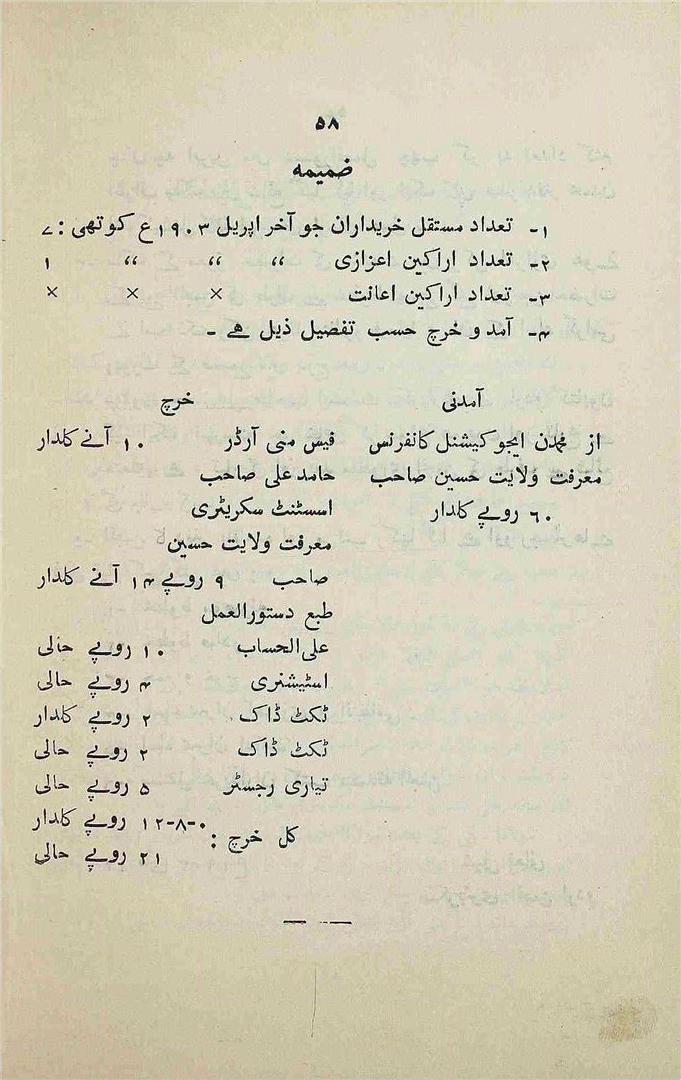 ۵۸
ضمیمہ
۱۔ تعداد مستقل خریداران جو آخر اپریل ۱۹۰۳ع کو تھی : ۷
۲۔ تعداد اراکین اعزازی ” ” ” ۱
۳۔ تعداد اراکین اعانت × × ×
۴۔ آمد و خرچ حسب تفصیل ذیل ہے ۔
آمدنی
از محمڈن ایجوکیشنل کانفرنس
معرفت ولایت حسین صاحب
۶۰ روپے کلدار
خرچ
فیس منی آرڈر ۱۰ آنے کلدار
حامد علی صاحب
اسسٹنٹ سکریٹری
معرفت ولایت حسین
صاحب ۹ روپے ۱۴ آنے کلدار
طبع دستورالعمل
علی‌الحساب ۱۰ روپے حالی
اسٹیشنری ۴ روپے حالی
ٹکٹ ڈاک ۲ روپے کلدار
ٹکٹ ڈاک ۲ روپے حالی
تیاری رجسٹر ۵ روپے حالی
کل خرچ : ۱۲-۸-۰ روپے کلدار
۲۱ روپے حالی